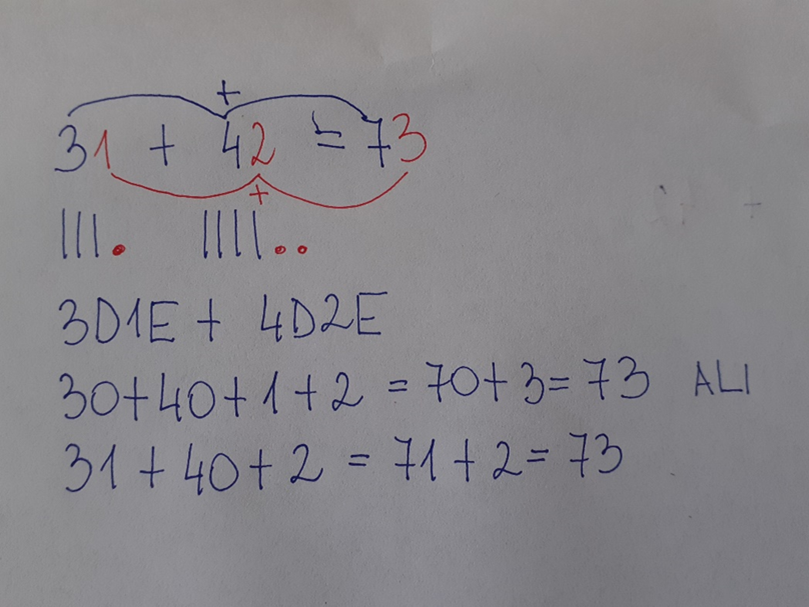 +
31 + 42 = 73
+
|||. ||||..
3D1E + 4D2E
30+40+1+2 = 70+3= 73 ALI
31+40+2 = 71+2= 73